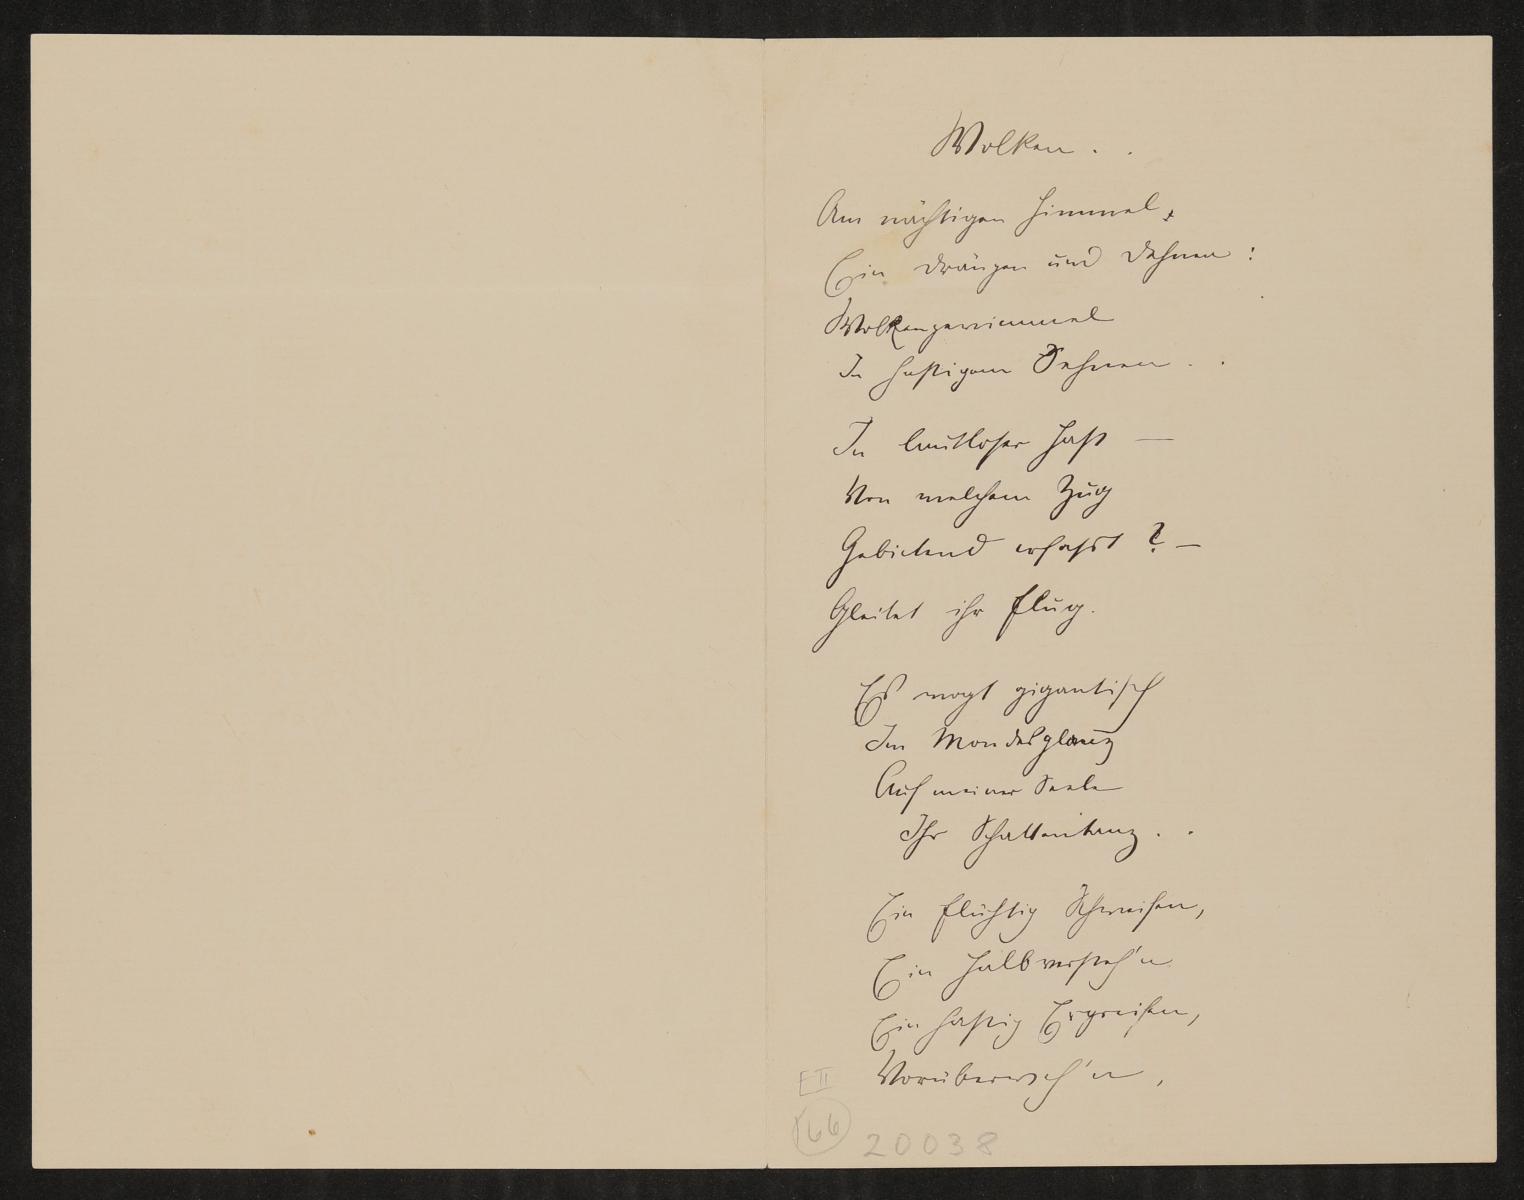 Wolken . .
Am nächtigen Himmel,
Ein Drängen und Dehnen :
Wolkengewimmel
In hastigem Sehnen . .
In lautloser Hast —
Von welchem Zug
Gebietend erfasst ? —
Gleitet ihr Flug.
Es wogt gigantisch
Im Mondesglanz
Auf meiner Seele
Ihr Schattentanz . .
Ein flüchtig Schweifen,
Ein Halbversteh'n
Ein hastig Ergreifen,
Vorüberweh'n ,
E II
66
20038